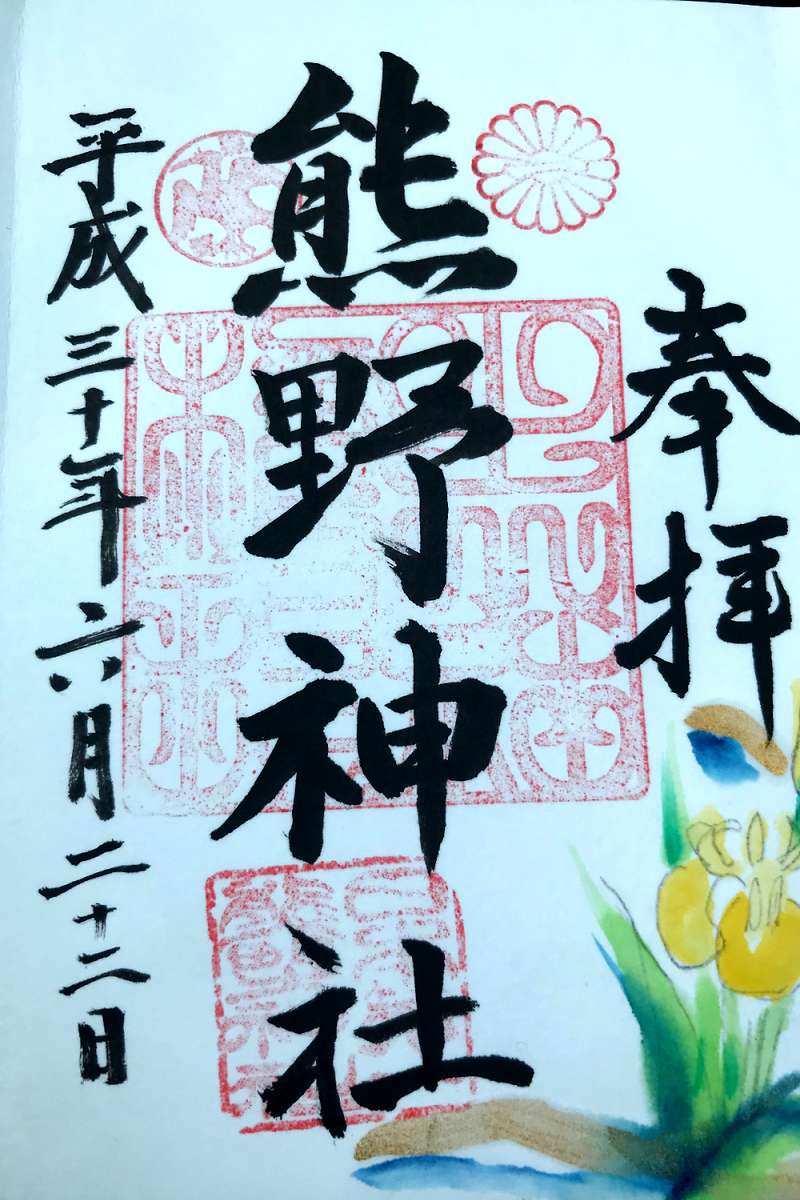 奉拝
熊野神社
平成三十年六月二十二日